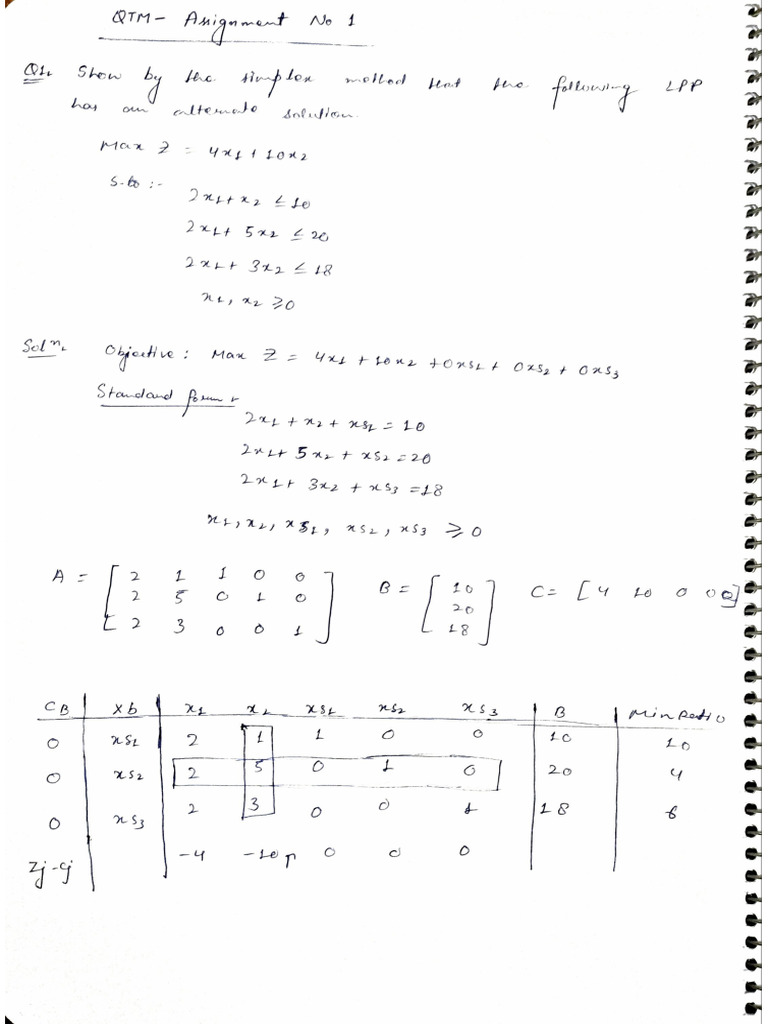 QTM - Assignment No 1
Q1. Show by the simplex method that the following LPP
has an alternate solution.
Max Z = 4x1 + 10x2
S.to :-
2x1 + x2 ≤ 10
2x1 + 5x2 ≤ 20
2x1 + 3x2 ≤ 18
x1, x2 ≥ 0
Solⁿ. Objective : Max Z = 4x1 + 10x2 + 0xS1 + 0xS2 + 0xS3
Standard form
2x1 + x2 + xS1 = 10
2x1 + 5x2 + xS2 = 20
2x1 + 3x2 + xS3 = 18
x1, x2, xS1, xS2, xS3 ≥ 0
A = [ 2 1 1 0 0 B = [ 10 C = [ 4 10 0 0 0 ]
2 5 0 1 0 20
2 3 0 0 1 ] 18 ]
CB Xb x1 x2 xS1 xS2 xS3 B Min Ratio
0 xS1 2 1 1 0 0 10 10
0 xS2 2 5 0 1 0 20 4
0 xS3 2 3 0 0 1 18 6
Zj-Cj -4 -10↑ 0 0 0